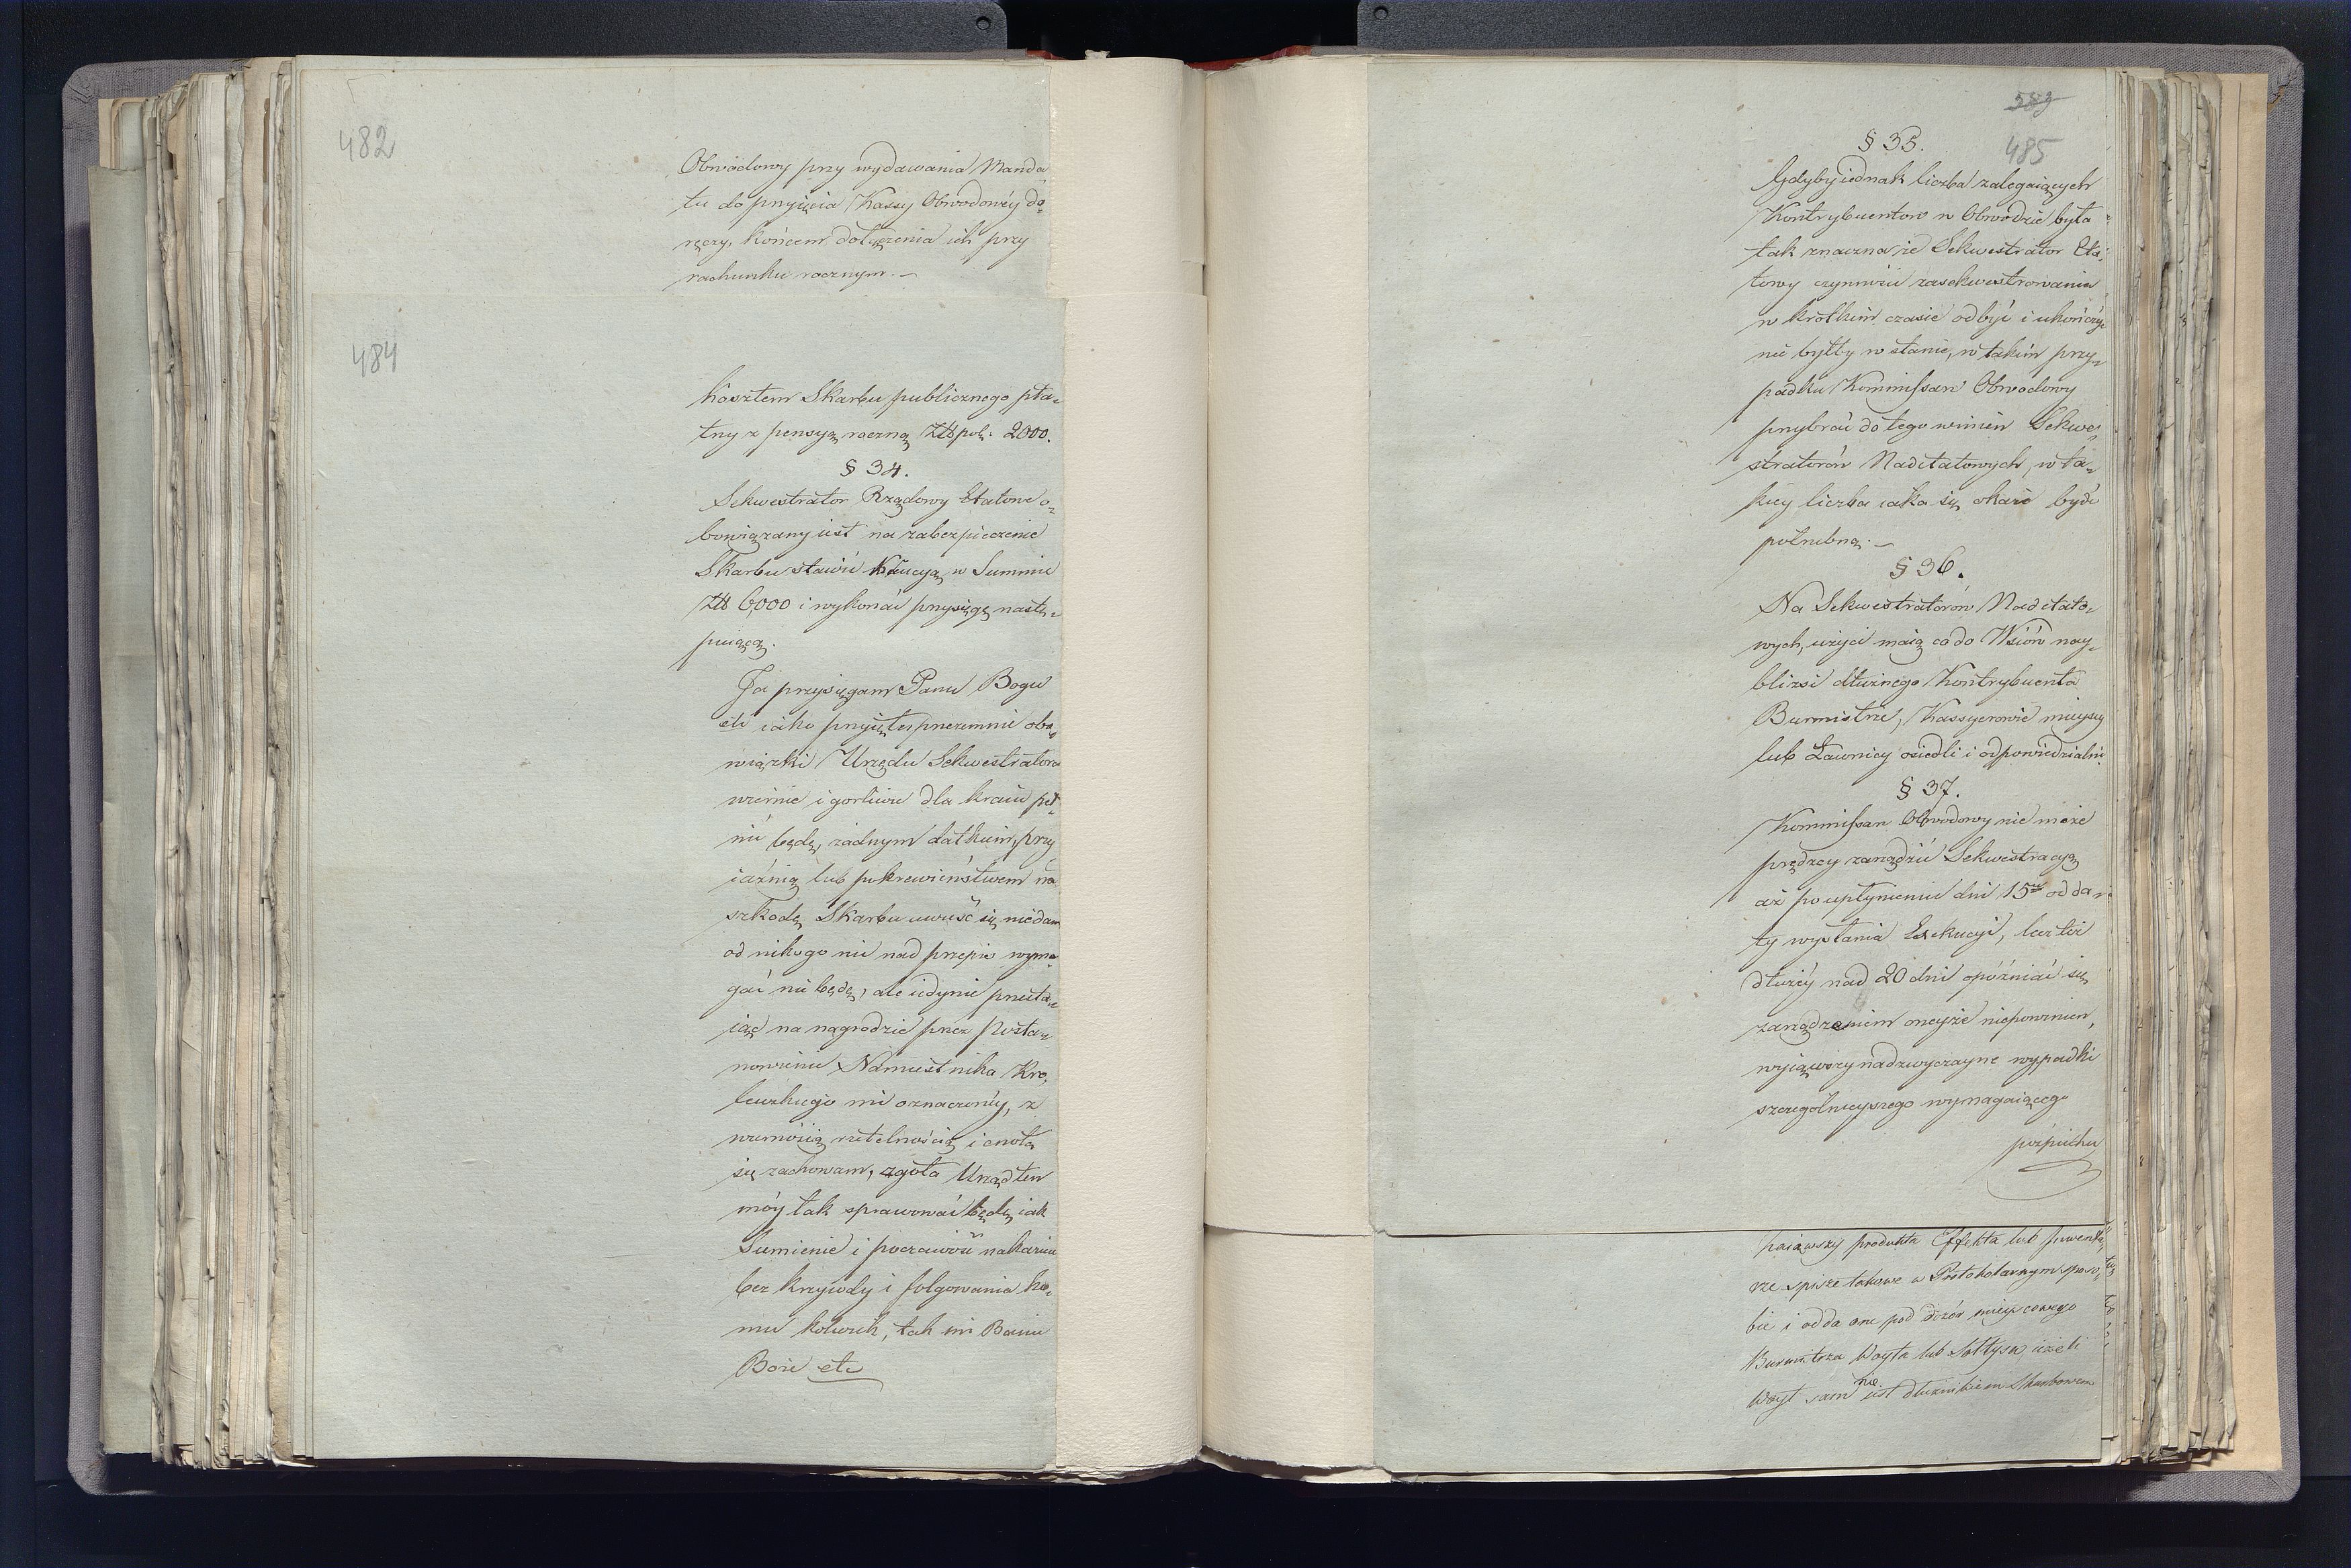 482
Obwodowy przy wydawania Manda¬
tu do przyięcia Kassy Obwodowéy do¬
ręczy, końcem dołączenia ich przy
rachunku rocznym. —
484
kosztem Skarbu publicznego pła¬
tny z pensyą roczną Złł pol: 2000.
§ 34.
Sekwestrator Rządowy Etatowe o¬
bowiązany iest na zabezpieczenie
Skarbu stawić Kaucyą w Summie
Złł 6,000 i wykonać przysięgę nastę¬
puiącą.
Ja przysięgam Panu Bogu
etc iako przyięte przezemnie obo¬
wiązki Urzędu Sekwestratora
wiernie i gorliwie dla kraiu peł¬
nić będę, żadnym datkiem, przy
iaźnią lub pokrewieństwem na
szkodę Skarbu uwieść się niedam
od nikogo nic nad przepis wyma¬
gać nie będę, ale iedynie przesta¬
iąc na nagrodzie przez Posta¬
nowienie Namiestnika Kró¬
lewskiego mi oznaczonéy, z
wiernością rzetelnością i cnotą
się zachowam, zgoła Urząd ten
móy tak sprawować będę iak
Sumienie i poczciwość nakazuie
bez krzywdy i folgowania ko¬
mu kolwiek, tak mi Panie
Boże etc
583
485
§ 35.
Gdyby iednak liczba zalegaiących
Kontrybuentow w Obwodzie była
tak znaczna że Sekwestrator Eta¬
towy czynności zasekwestrowania
w krótkim czasie odbyć i ukończyć
nie byłby w stanie, w takim przy¬
padku Kommissarz Obwodowy
przybrać do tego winien Sekwe¬
stratorów Nadetatowych, w ta¬
kiey liczba iaka się okaże bydź
potrzebną. —
§ 36.
Na Sekwestratorów Nadetato¬
wych, użyci maią co do Wsiów nay¬
bliżsi dłużnego Kontrybuenta
Burmistrze, Kassyerowie mieyscy
lub Ławnicy osiedli i odpowiedzialni.
§ 37.
Kommissarz Obwodowy nie może
prędzey zarządzić Sekwestracyą
aż po upłynieniu dni 15 od da¬
ty wysłania Exekucyi, lecz też
dłużéy nad 20 dni opóźniać się
zarządzeniem oneyże niepowinien,
wyiąwszy nadzwyczayne wypadki
szczególnieyszego wymagaiącego
pośpiechu
produkta Effekta lub Inwenta¬
rze spisze takowe w Protokolarnym sposo¬
bie i odda one pod dozór mieyscowego
Burmistrza Woyta lub Sołtysa, ieżeli
Woyt sam nie iest dłużnikiem Skarbowem